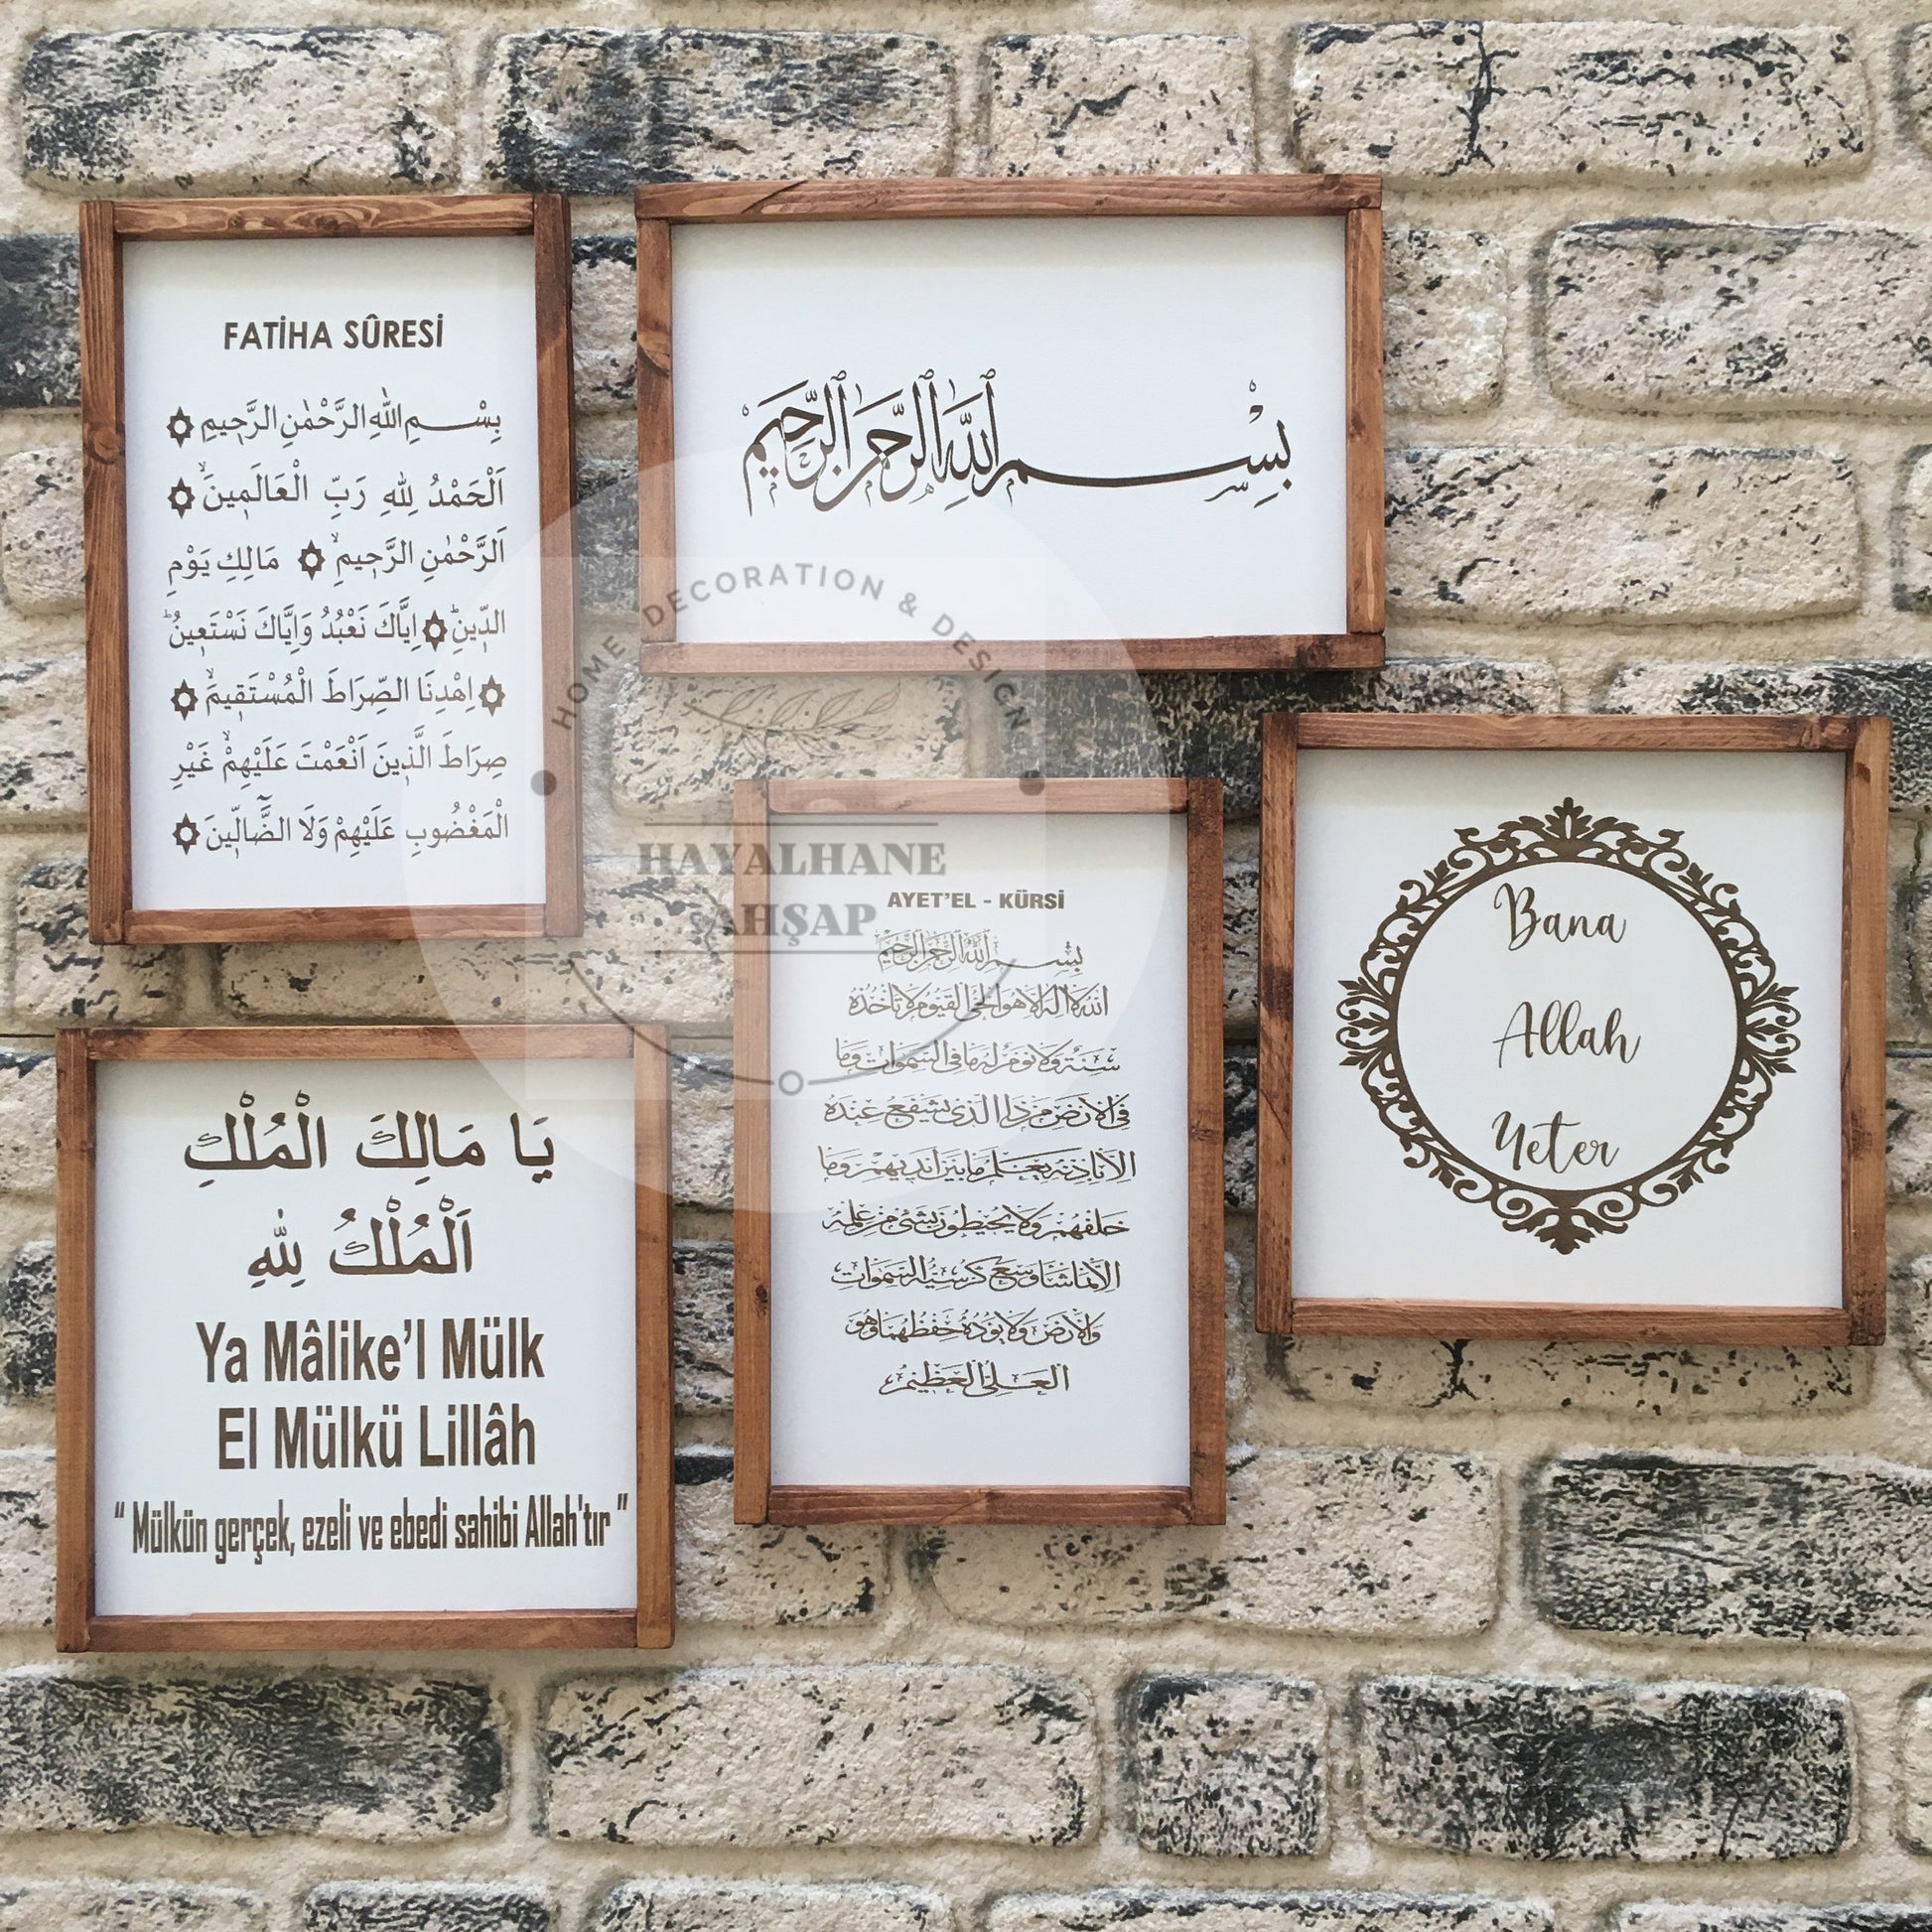 FATİHA SÛRESİ
بِسْمِ اللهِ الرَّحْمٰنِ الرَّح۪يمِ
اَلْحَمْدُ لِلّٰهِ رَبِّ الْعَالَم۪ينَۙ
اَلرَّحْمٰنِ الرَّح۪يمِۙ مَالِكِ يَوْمِ
الدّ۪ينِۜ اِيَّاكَ نَعْبُدُ وَاِيَّاكَ نَسْتَع۪ينُۜ
اِهْدِنَا الصِّرَاطَ الْمُسْتَق۪يمَۙ
صِرَاطَ الَّذ۪ينَ اَنْعَمْتَ عَلَيْهِمْۙ غَيْرِ
الْمَغْضُوبِ عَلَيْهِمْ وَلَا الضَّٓالّ۪ينَ
بِسْمِ اللَّهِ الرَّحْمٰنِ الرَّحِيمِ
HOME DECORATION & DESIGN
HAYALHANE
AHŞAP
AYET'EL - KÜRSİ
بسم الله الرحمن الرحيم
الله لا اله الا هو الحي القيوم لا تأخذه
سنة ولا نوم له ما في السموات وما
في الارض من ذا الذي يشفع عنده
الا باذنه يعلم ما بين ايديهم وما
خلفهم ولا يحيطون بشئ من علمه
الا بما شاء وسع كرسيه السموات
والارض ولا يؤده حفظهما وهو
العلي العظيم
Bana
Allah
Yeter
يَا مَالِكَ الْمُلْكِ
اَلْمُلْكُ لِلّٰهِ
Ya Mâlike'l Mülk
El Mülkü Lillâh
" Mülkün gerçek, ezeli ve ebedi sahibi Allah'tır "